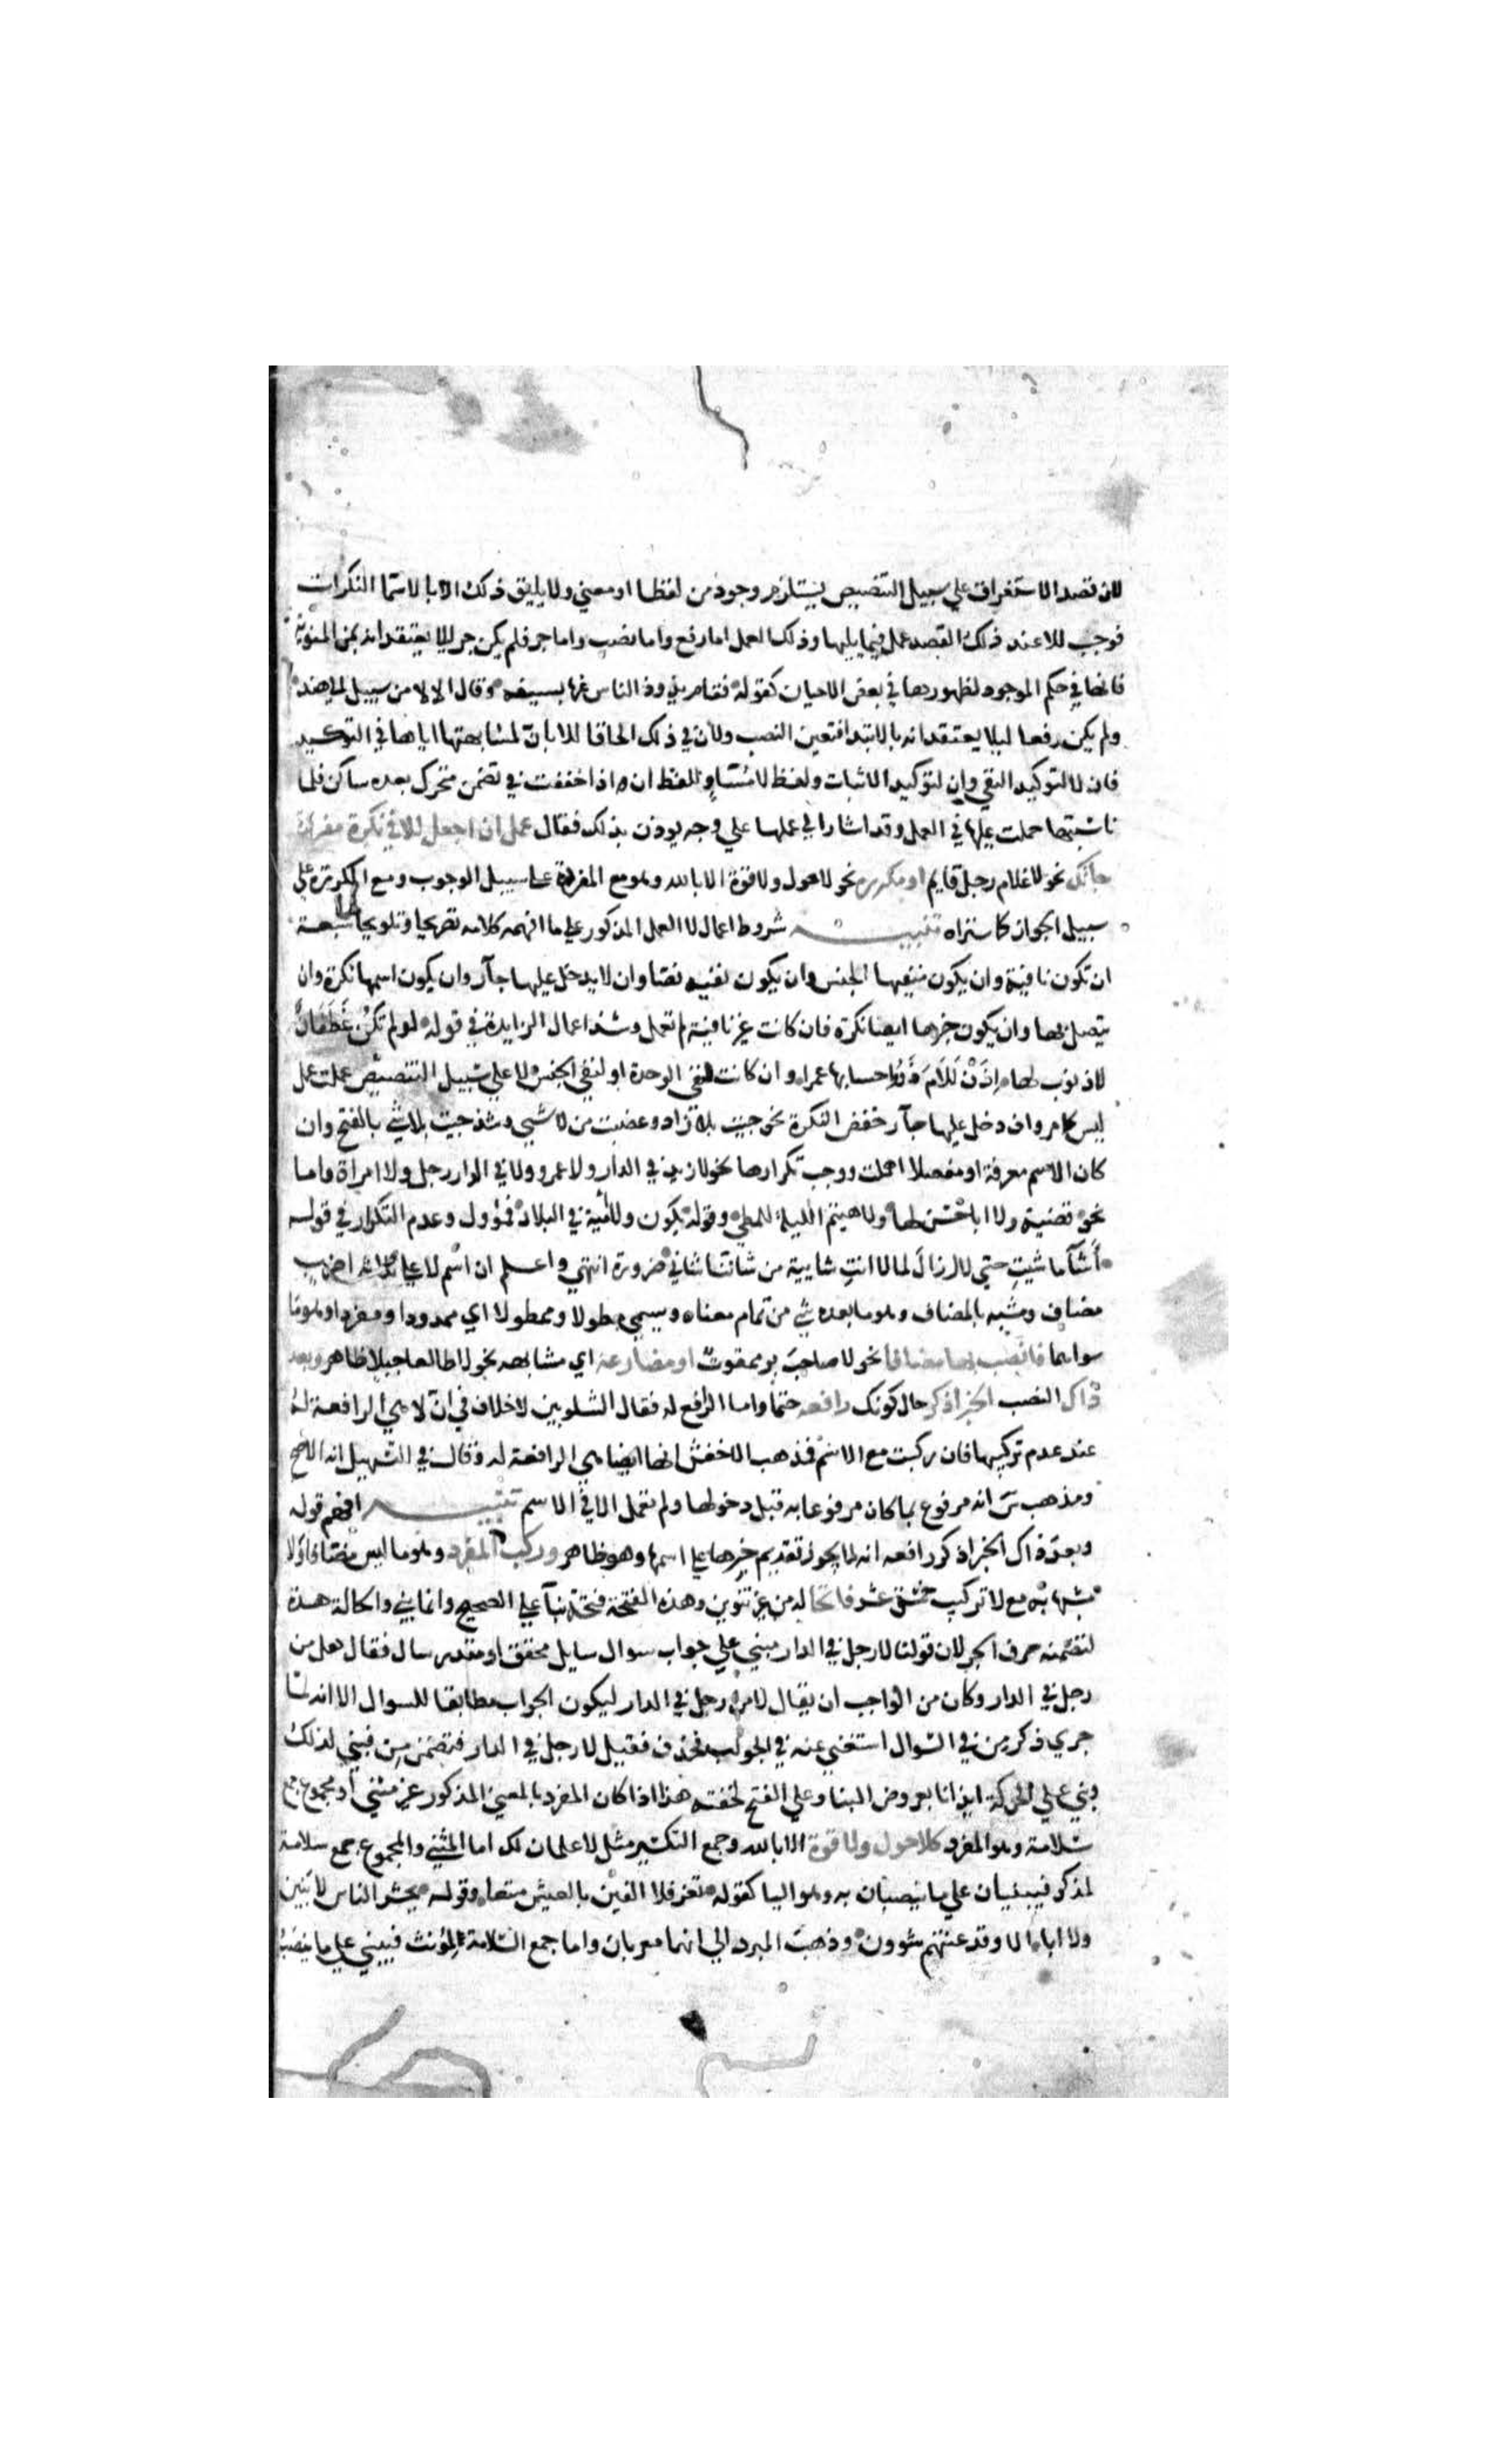 لان قصد الاستغراق علي سبيل التنصيص يستلزم وجود من لفظا او معني ولا يليق ذلك الا بالاسما النكرات
فوجب للا عند ذلك القصد عمل فيما يليها وذلك العمل اما رفع واما نصب واما جر فلم يكن جر ليلا يعتقد انه بمن المنوية
فانها في حكم الموجوده لظهورها في بعض الاحيان كقوله فقام يذود الناس عنها بسيفه وقال الا لا من سبيل الي هند
ولم يكن رفعا ليلا يعتقد انه بالابتدا فتعين النصب ولان في ذلك الحاقا للا بان لمشابهتها اياها في التوكيد
فان لا لتوكيد النفي وان لتوكيد الاثبات ولفظ لا مساو للفظ ان اذا خففت في تضمن متحرك بعده ساكن فلما
ناسبتها حملت عليها في العمل وقد اشار الي عملها علي وجه يوذن بذلك فقال عمل ان اجعل للا في نكرة مفردة
جاتك نحو لا غلام رجل قايم او مكررة نحو لا حول ولا قوة الا بالله وهو مع المفردة علي سبيل الوجوب ومع المكررة علي
سبيل الجواز كما ستراه تنبيه شروط اعمال لا العمل المذكور علي ما افهمه كلامه تصريحا وتلويحا سبعة
ان تكون نافية وان يكون منفيها الجنس وان يكون نفيه نصا وان لا يدخل عليها جار وان يكون اسمها نكرة وان
يتصل بها وان يكون خبرها ايضا نكرة فان كانت غير نافية لم تعمل وشذ اعمال الزايدة في قوله لو لم تكن غطفان
لا ذنوب لها اذن للام ذوو احسابها عمرا وان كانت لنفي الوحدة او لنفي الجنس لا علي سبيل التنصيص عملت عمل
ليس كما مر وان دخل عليها جار خفض النكرة نحو جيت بلا زاد وغضبت من لا شيي وشذ جيت بلا شي بالفتح وان
كان الاسم معرفة او منفصلا اهملت ووجب تكرارها نحو لا زيد في الدار ولا عمرو ولا في الدار رجل ولا امراة واما
نحو قضية ولا ابا حسن لها ولا هيثم الليلة للمطي وقوله يكون ولا امية في البلاد فمؤول وعدم التكرار في قوله
أشآ ما شيت حتي لا ازال لما لا انت شايية من شاننا شاني ضرورة انتهي واعلم ان اسم لا علي ثلاثه اضرب
مضاف ومشبه بالمضاف وهو ما بعده شي من تمام معناه ويسمي مطولا وممطولا اي ممدودا ومفرد وهو ما
سواهما فانصب بها مضافا نحو لا صاحب بر ممقوت او مضارعه اي مشابهه نحو لا طالعا جبلا ظاهر وبعد
ذاك النصب الخبر اذكر حال كونك رافعه حتما واما الرافع له فقال الشلوبين لا خلاف في ان لا هي الرافعة له
عند عدم تركيبها فان ركبت مع الاسم فذهب الاخفش انها ايضا هي الرافعة له وقال في التسهيل انه الاصح
ومذهب س انه مرفوع بما كان مرفوعا به قبل دخولها ولم تعمل الا في الاسم تنبيه افهم قوله
وبعد ذاك الخبر اذكر رافعه انه لا يجوز تقديم خبرها علي اسمها وهو ظاهر وركب المفرد وهو ما ليس مضافا ولا
مشبها به مع لا تركيب خمسة عشر فاتحا له من غير تنوين وهذه الفتحة فتحة بنآ علي الصحيح وانما بني والحالة هذه
لتضمنه حرف الجر لان قولنا لا رجل في الدار مبني علي جواب سوال سايل محقق او مقدر سال فقال هل من
رجل في الدار وكان من الواجب ان يقال لا من رجل في الدار ليكون الجواب مطابقا للسوال الا انه لما
جري ذكر من في السوال استغني عنه في الجواب فحذف فقيل لا رجل في الدار فتضمن من فبني لذلك
وبني علي الحركة ايذانا بعروض البنا وعلي الفتح لخفته هذا اذا كان المفرد بالمعني المذكور غير مثني او مجموع جمع
سلامة وهو المفرد كلا حول ولا قوة الا بالله وجمع التكسير مثل لا غلمان لك اما المثني والمجموع جمع سلامة
لمذكر فيبنيان علي ما ينصبان به وهو اليا كقوله تعز فلا الفين بالعيش متعا وقوله يحشر الناس لا بنين
ولا اباء الا وقد عنتهم شوون وذهب المبرد الي انهما معربان واما جمع السلامة لمؤنث فيبني علي ما ينصب